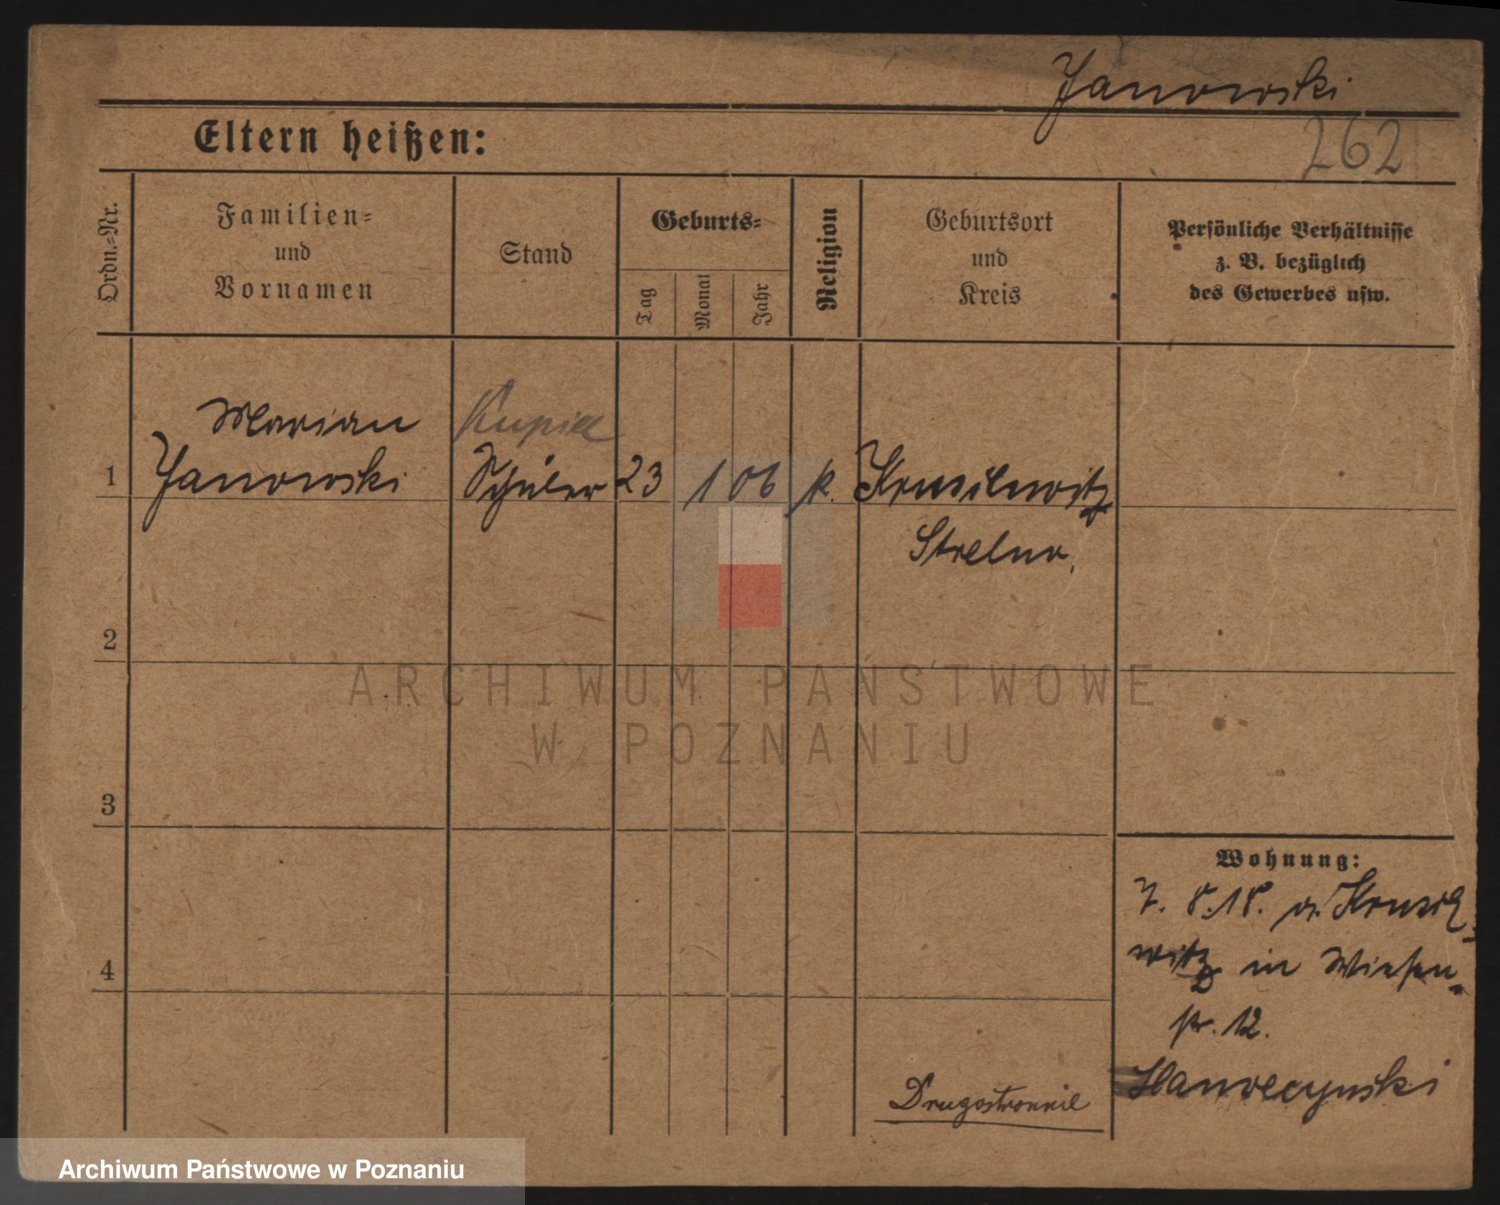 Janowski
262
Eltern heißen:
Ordn.=Nr.
Familien=
und
Vornamen
Stand
Geburts=
Tag
Monat
Jahr
Religion
Geburtsort
und
Kreis
Persönliche Verhältnisse
z. B. bezüglich
des Gewerbes usw.
Marian
Kupiec
1
Janowski
Schüler
23
1
06
k.
Kruschwitz
Strelno.
2
ARCHIWUM PAŃSTWOWE
W POZNANIU
3
Wohnung:
7. 8. 18. v. Krusch-
witz in Wiesen-
str. 12.
4
Drugostronnie
Archiwum Państwowe w Poznaniu